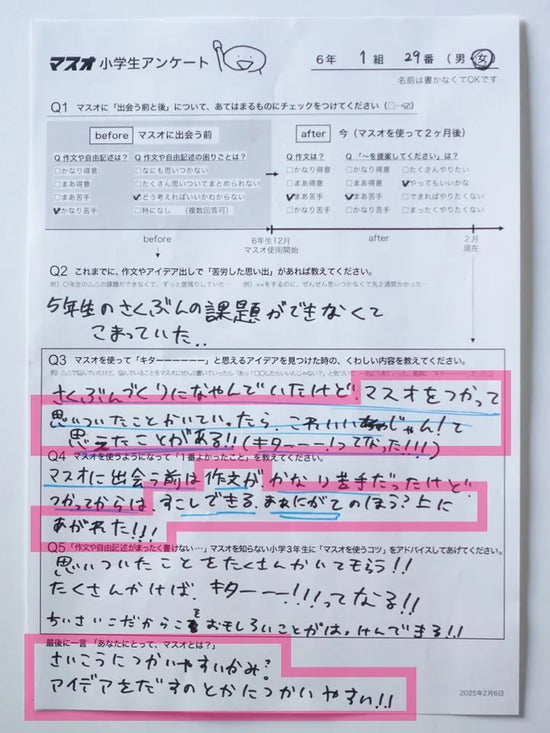 マスオ 小学生アンケート
6年 1組 29番 (男・女)
名前は書かなくてOKです
Q1 マスオに「出会う前と後」について、あてはまるものにチェックをつけてください(□→☑)
before マスオに出会う前
after 今(マスオを使って2ヶ月後)
Q 作文や自由記述は? Q 作文や自由記述の困りごとは?
□かなり得意 □なにも思いつかない
□まあ得意 □たくさん思いついてまとめられない
□まあ苦手 ☑どう考えればいいかわからない
☑かなり苦手 □特になし (複数回答可)
Q 作文は? Q「〜を提案してください」は?
□かなり得意 □かなり得意 □たくさんやりたい
□まあ得意 □まあ得意 ☑やってもいいかな
☑まあ苦手 ☑まあ苦手 □できればやりたくない
□かなり苦手 □かなり苦手 □まったくやりたくない
before
6年生12月
マスオ使用開始
after
2月
現在
Q2 これまでに、作文やアイデア出しで「苦労した思い出」があれば教えてください。
5年生のさくぶんの課題ができなくて
こまっていた..
Q3 マスオを使って「キターーーーーー」と思えるアイデアを見つけた時の、くわしい内容を教えてください。
さくぶんづくりになやんでいたけど、マスオをつかって
思いついたことかいていったら、これいいじゃん!て
思えたことがある!!(キターーー!ってなった!!!)
Q4 マスオを使うようになって「1番よかったこと」を教えてください。
マスオに出会う前は作文がかなり苦手だったけど、
つかってからは、すこしできる、まあにがてのほう?上に
あがれた!!!
Q5「作文や自由記述がまったく書けない…」マスオを知らない小学3年生に「マスオを使うコツ」をアドバイスしてあげてください。
思いついたことをたくさんかいてもらう!!
たくさんかけば、キターー!!!ってなる!!
ちいさいこだからこそおもしろいことがはっけんできる!!
最後に一言「あなたにとって、マスオとは?」
さいこうにつかいやすいかみ?
アイデアをだすのとかにつかいやすい!!
2025年2月6日